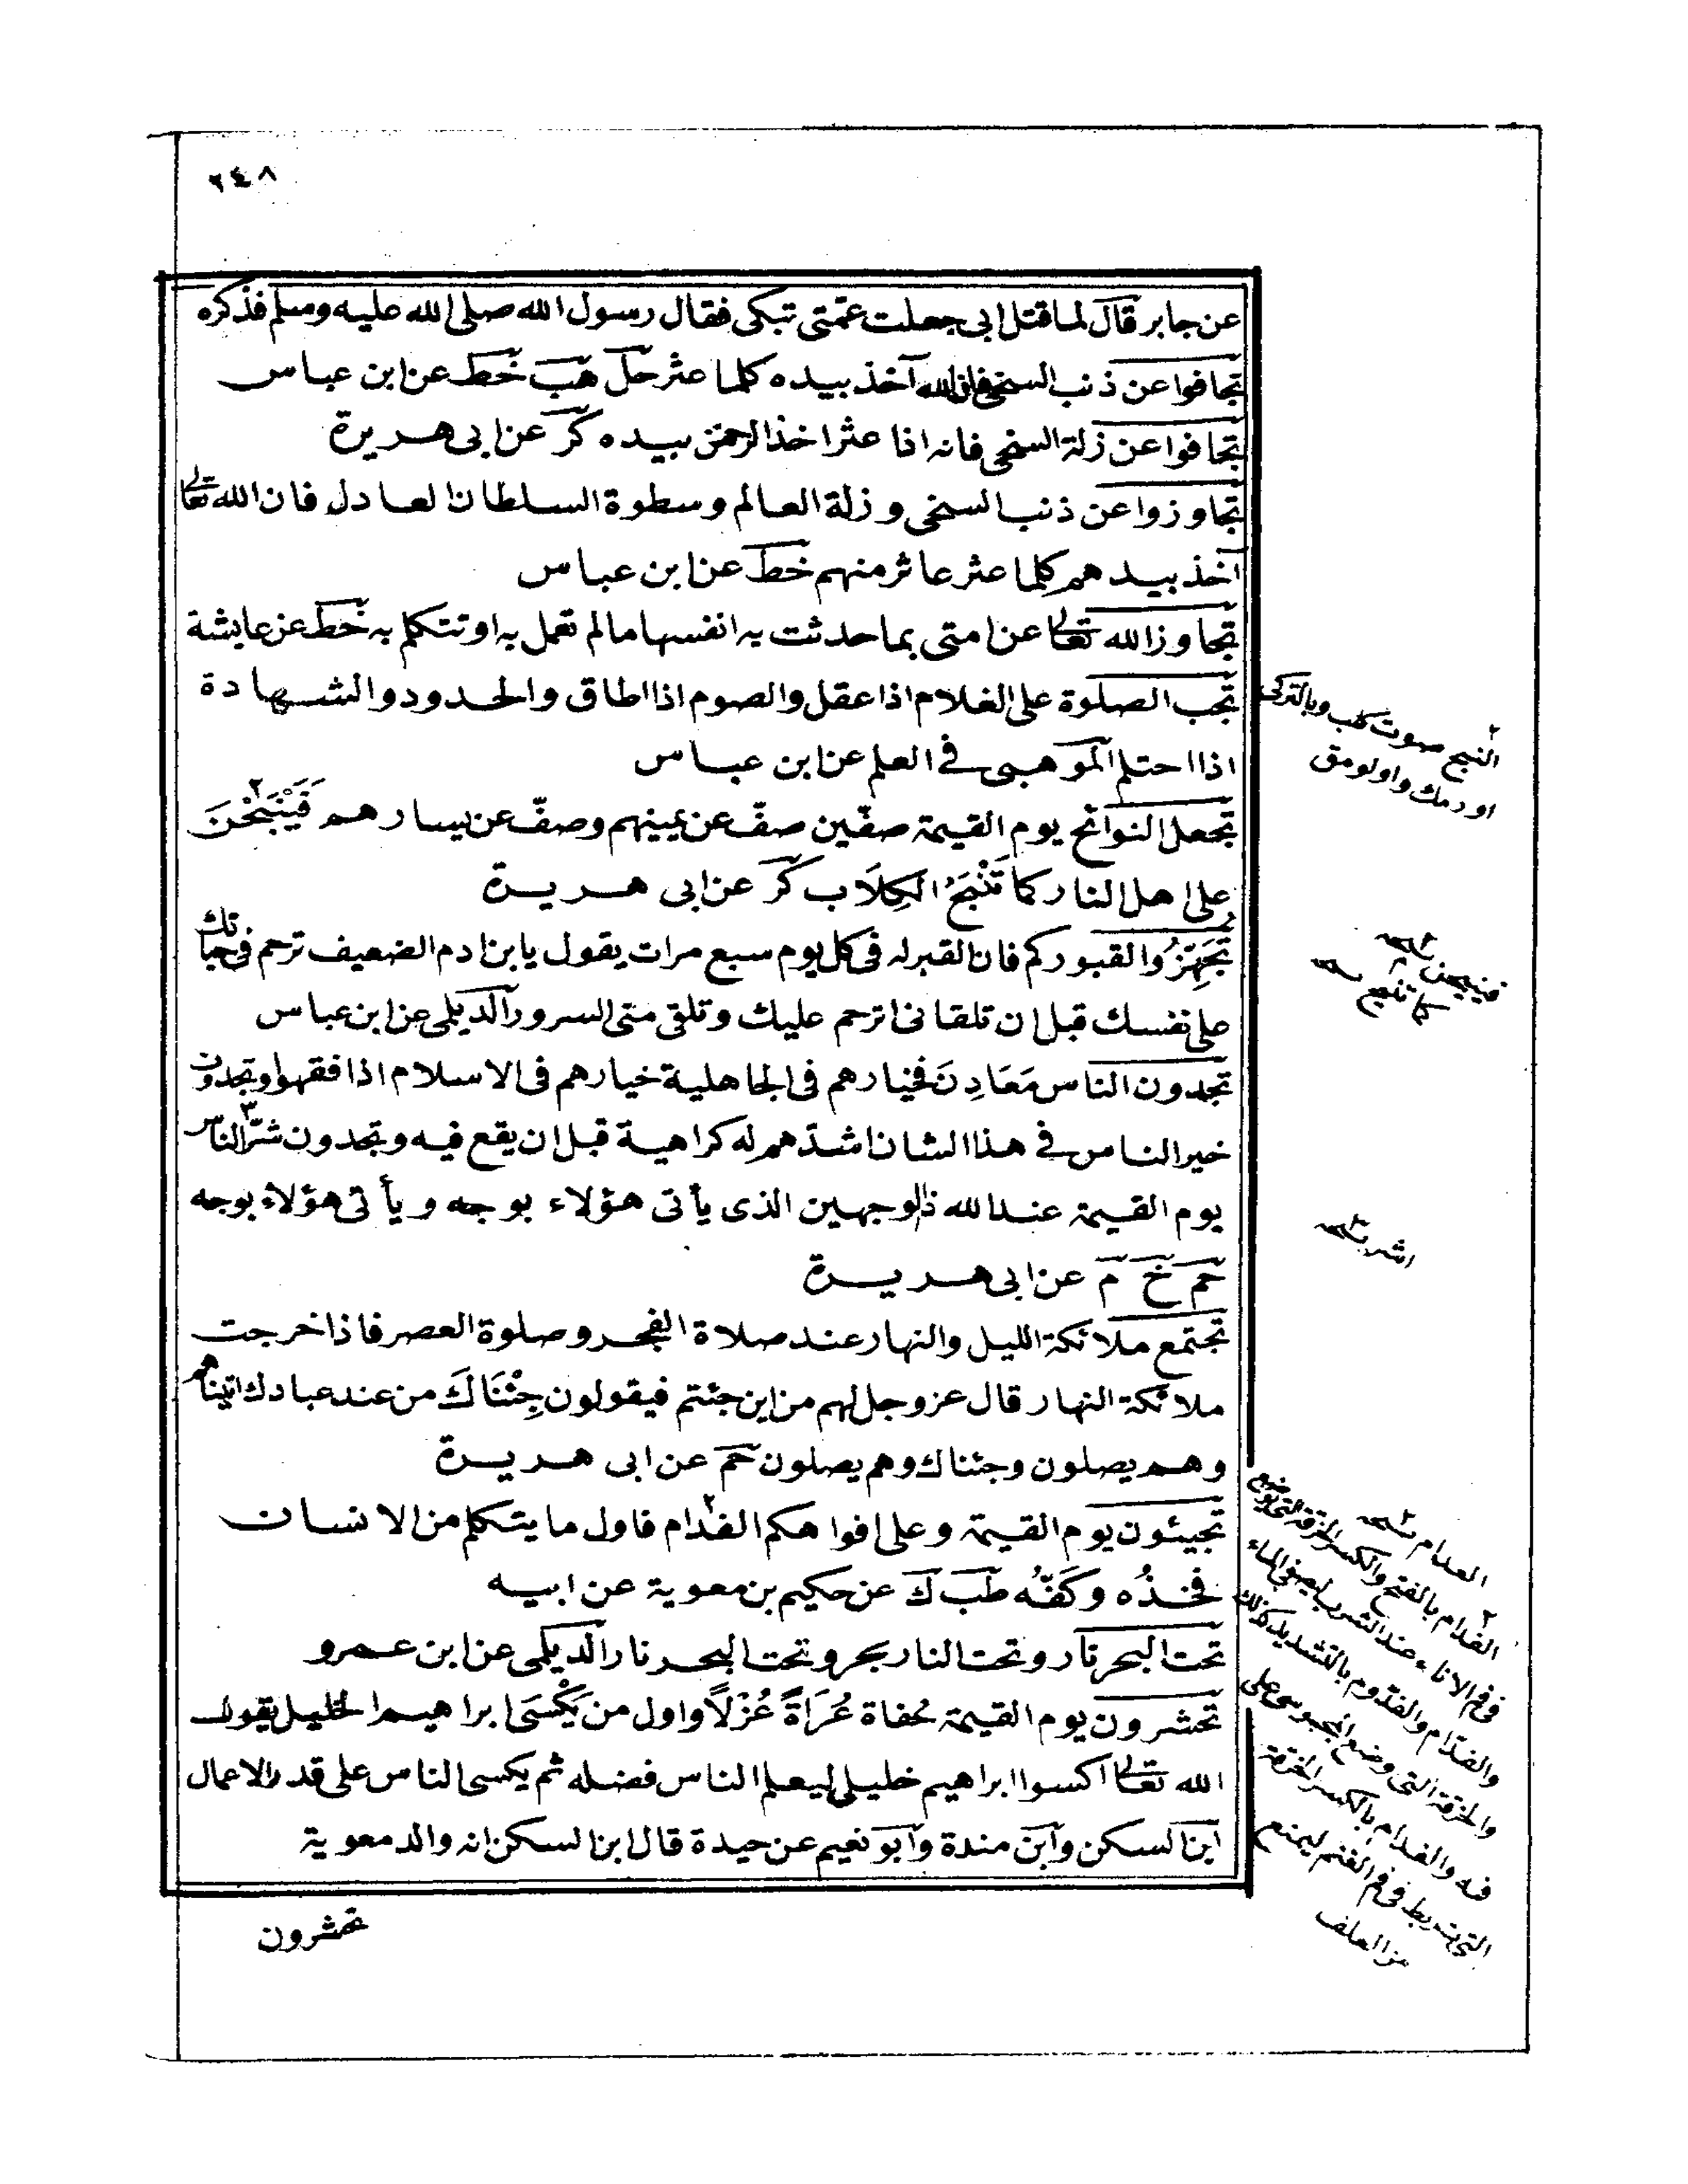 ٢٤٨
عن جابر قال لما قتل ابى جعلت عمّتى تبكى فقال رسول الله صلى الله عليه وسلم فذكره
تجافوا عن ذنب السخى فان الله آخذ بيده كلما عثر حل هب خط عن ابن عباس
تجافوا عن زلة السخى فانه اذا عثر اخذ الرحمن بيده كر عن ابى هريرة
تجاوزوا عن ذنب السخى وزلة العالم وسطوة السلطان العادل فان الله تعالى
آخذ بيدهم كلما عثر عاثر منهم خط عن ابن عباس
تجاوز الله تعالى عن امتى بما حدثت به انفسها ما لم تعمل به او تتكلم به خط عن عايشة
تجب الصلوة على الغلام اذا عقل والصوم اذا اطاق والحدود والشهادة
اذا احتلم الموهبى فى العلم عن ابن عباس
تجعل النوائح يوم القيمة صفّين صفّ عن يمينهم وصفّ عن يسارهم فَيَنْبَحْنَ
على اهل النار كما تَنْبَحُ الكِلَاب كر عن ابى هريرة
تُجَهِّزُوا لقبوركم فان القبر له فى كل يوم سبع مرات يقول يا بن ادم الضعيف ترحم فى حياتك
على نفسك قبل ان تلقانى اترحم عليك وتلقى منى السرور الديلمى عن ابن عباس
تجدون الناس مَعَادِنَ فخيارهم فى الجاهلية خيارهم فى الاسلام اذا فقهوا وتجدون
خير الناس فى هذا الشان اشدّهم له كراهية قبل ان يقع فيه وتجدون شرّ الناس
يوم القيمة عند الله ذا الوجهين الذى يأتى هؤلاء بوجه ويأتى هؤلاء بوجه
حم خ م عن ابى هريرة
تجتمع ملائكة الليل والنهار عند صلاة الفجر وصلوة العصر فاذا خرجت
ملائكة النهار قال عز وجل لهم من اين جئتم فيقولون جِئْنَاكَ من عند عبادك اتيناهم
وهم يصلون وجئناك وهم يصلون حم عن ابى هريرة
تجيئون يوم القيمة وعلى افواهكم الفدام فاول ما يتكلم من الانسان
فخذُه وكَفّه طب ك عن حكيم بن معوية عن ابيه
تحت البحر نار وتحت النار بحر وتحت البحر نار الديلمى عن ابن عمرو
تحشرون يوم القيمة حُفاة عُرَاةً غُرْلًا واول من يُكْسَى ابراهيم الخليل يقول
الله تعالى اكسوا ابراهيم خليلى ليعلم الناس فضله ثم يكسى الناس على قدر الاعمال
ابن السكن وابن مندة وابو نعيم عن حيدة قال ابن السكن انه والد معوية
تحشرون
٢ النبح صوت كلب وبالتركى
اورمك واولومق
فينبحن
كما تنبح
اشر
الفدام بالفتح والكسر الخرقة التى توضع
فى فم الاناء عند الشرب ليصفى الماء
والفدّام والفدوم بالتشديد كذلك
والخرقة التى وضع المجوسى على
فمه والفدام بالكسر الخرقة
التى تربط فى فم الغنم ليمنع
من العلف